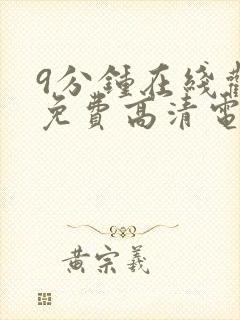 9分鍾在綫觀
免費高清電
黄宗羲